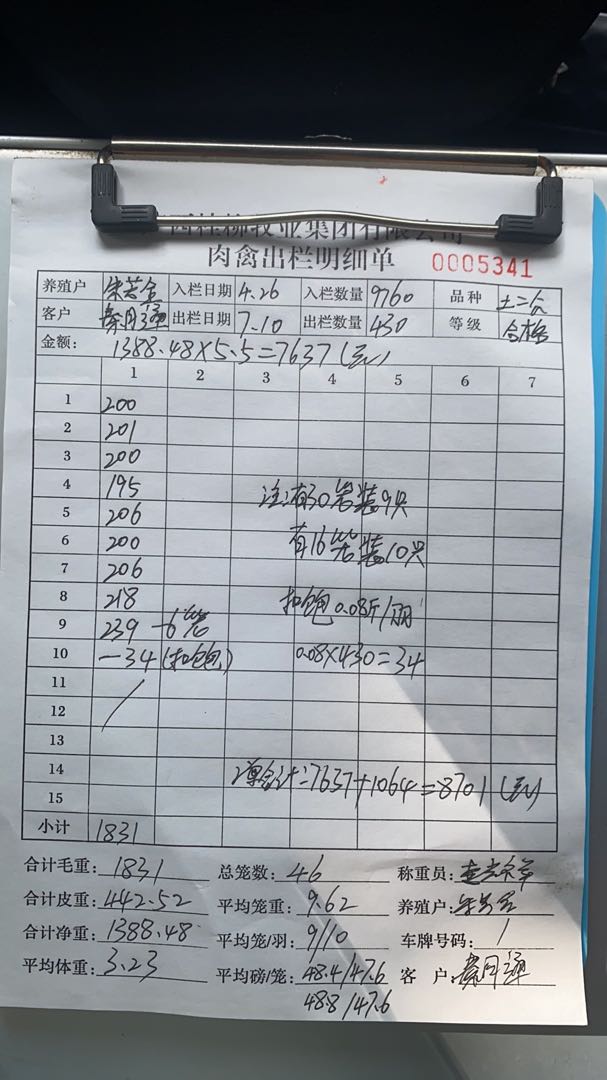 西桂柳牧业集团有限公司
肉禽出栏明细单 0005341
养殖户 入栏日期 4.26 入栏数量 9760 品种 土二
客户 出栏日期 7.10 出栏数量 430 等级 合格
金额: 1388.48×5.5=7637(元)
1 2 3 4 5 6 7
1 200
2 201
3 200
4 195 注:有30笼装9只
5 206
6 200 有16笼装10只
7 206
8 218 扣饱0.08斤/羽
9 239 -6笼
10 -34(扣饱) 0.08×430=34
11 /
12
13
14 2单合计:7637+1064=8701(元)
15
小计 1831
合计毛重: 1831 总笼数: 46 称重员:
合计皮重: 442.52 平均笼重: 9.62 养殖户:
合计净重: 1388.48 平均笼/羽: 9/10 车牌号码: /
平均体重: 3.23 平均磅/笼: 48.4/47.6 客 户:
48.8/47.6